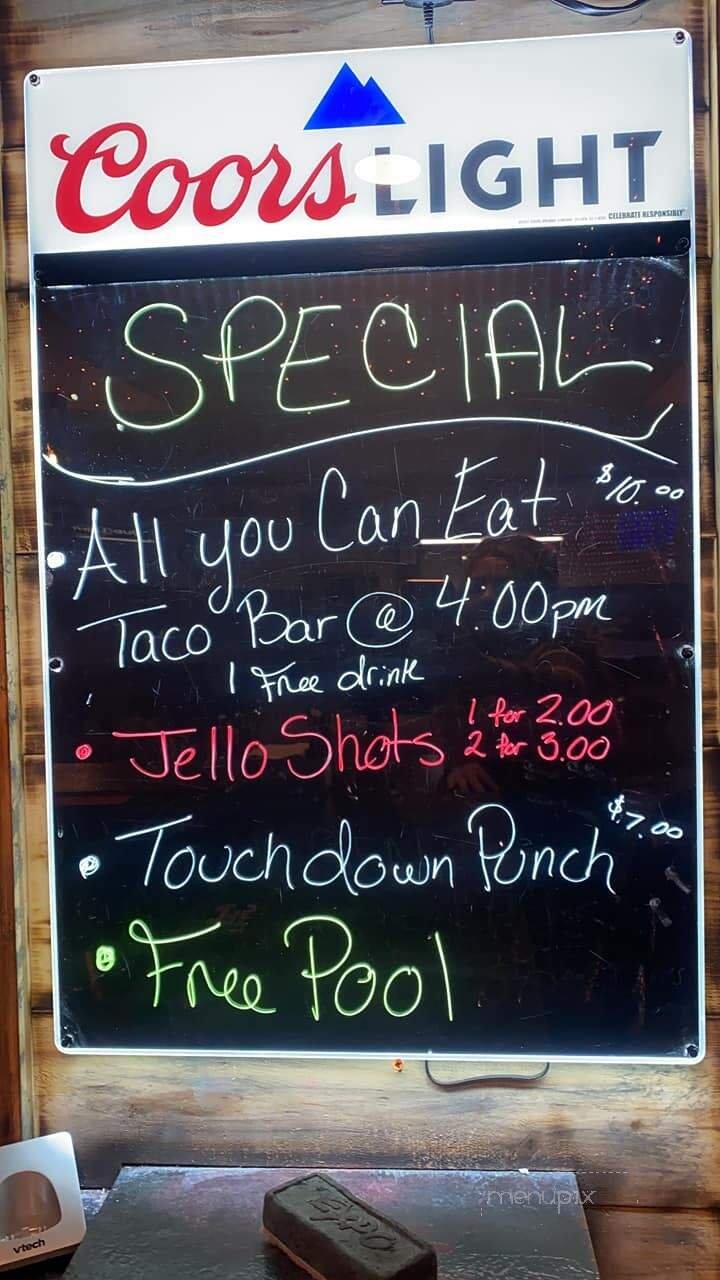 Coors LIGHT
CELEBRATE RESPONSIBLY
SPECIAL
• All you Can Eat $10.00
Taco Bar @ 4.00pm
1 Free drink
• Jello Shots 1 for 2.00
2 for 3.00
• Touchdown Punch $7.00
• Free Pool
EXPO
vtech
menupix